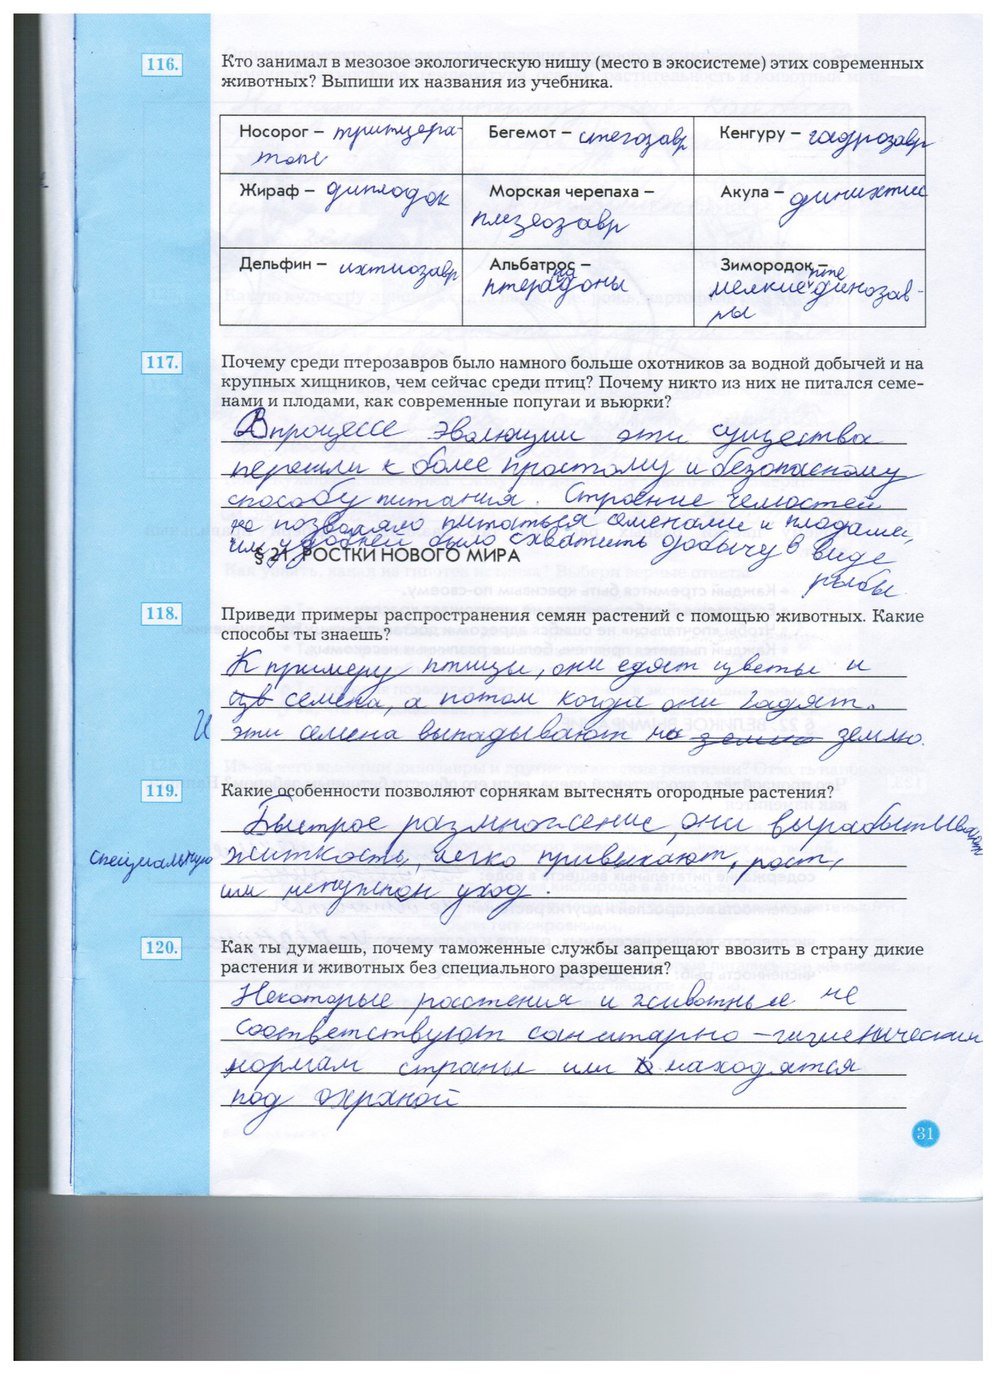 116. Кто занимал в мезозое экологическую нишу (место в экосистеме) этих современных
животных? Выпиши их названия из учебника.
Носорог – трицера-
топс
Бегемот – стегозавр
Кенгуру – гадрозавр
Жираф – диплодок
Морская черепаха –
плезеозавр
Акула – динихтис
Дельфин – ихтиозавр
Альбатрос –
птерадоны
Зимородок –
мелкие динозав-
ры
117. Почему среди птерозавров было намного больше охотников за водной добычей и на
крупных хищников, чем сейчас среди птиц? Почему никто из них не питался семе-
нами и плодами, как современные попугаи и вьюрки?
В процессе эволюции эти существа
перешли к более простому и безопасному
способу питания. Строение челюстей
не позволяло питаться семенами и плодами,
им удобней было схватить добычу в виде
рыбы.
§ 21. РОСТКИ НОВОГО МИРА
118. Приведи примеры распространения семян растений с помощью животных. Какие
способы ты знаешь?
К примеру птицы, они едят цветы и
цв семена, а потом когда они гадят.
И эти семена выпадывают на землю землю.
119. Какие особенности позволяют сорнякам вытеснять огородные растения?
Быстрое размножение, они вырабытывают
специальную житкость, легко привыкают, рост,
им ненужен уход.
120. Как ты думаешь, почему таможенные службы запрещают ввозить в страну дикие
растения и животных без специального разрешения?
Некоторые расстения и животные не
соответствуют санитарно – гигиеническим
нормам страны или находятся
под охраной
31